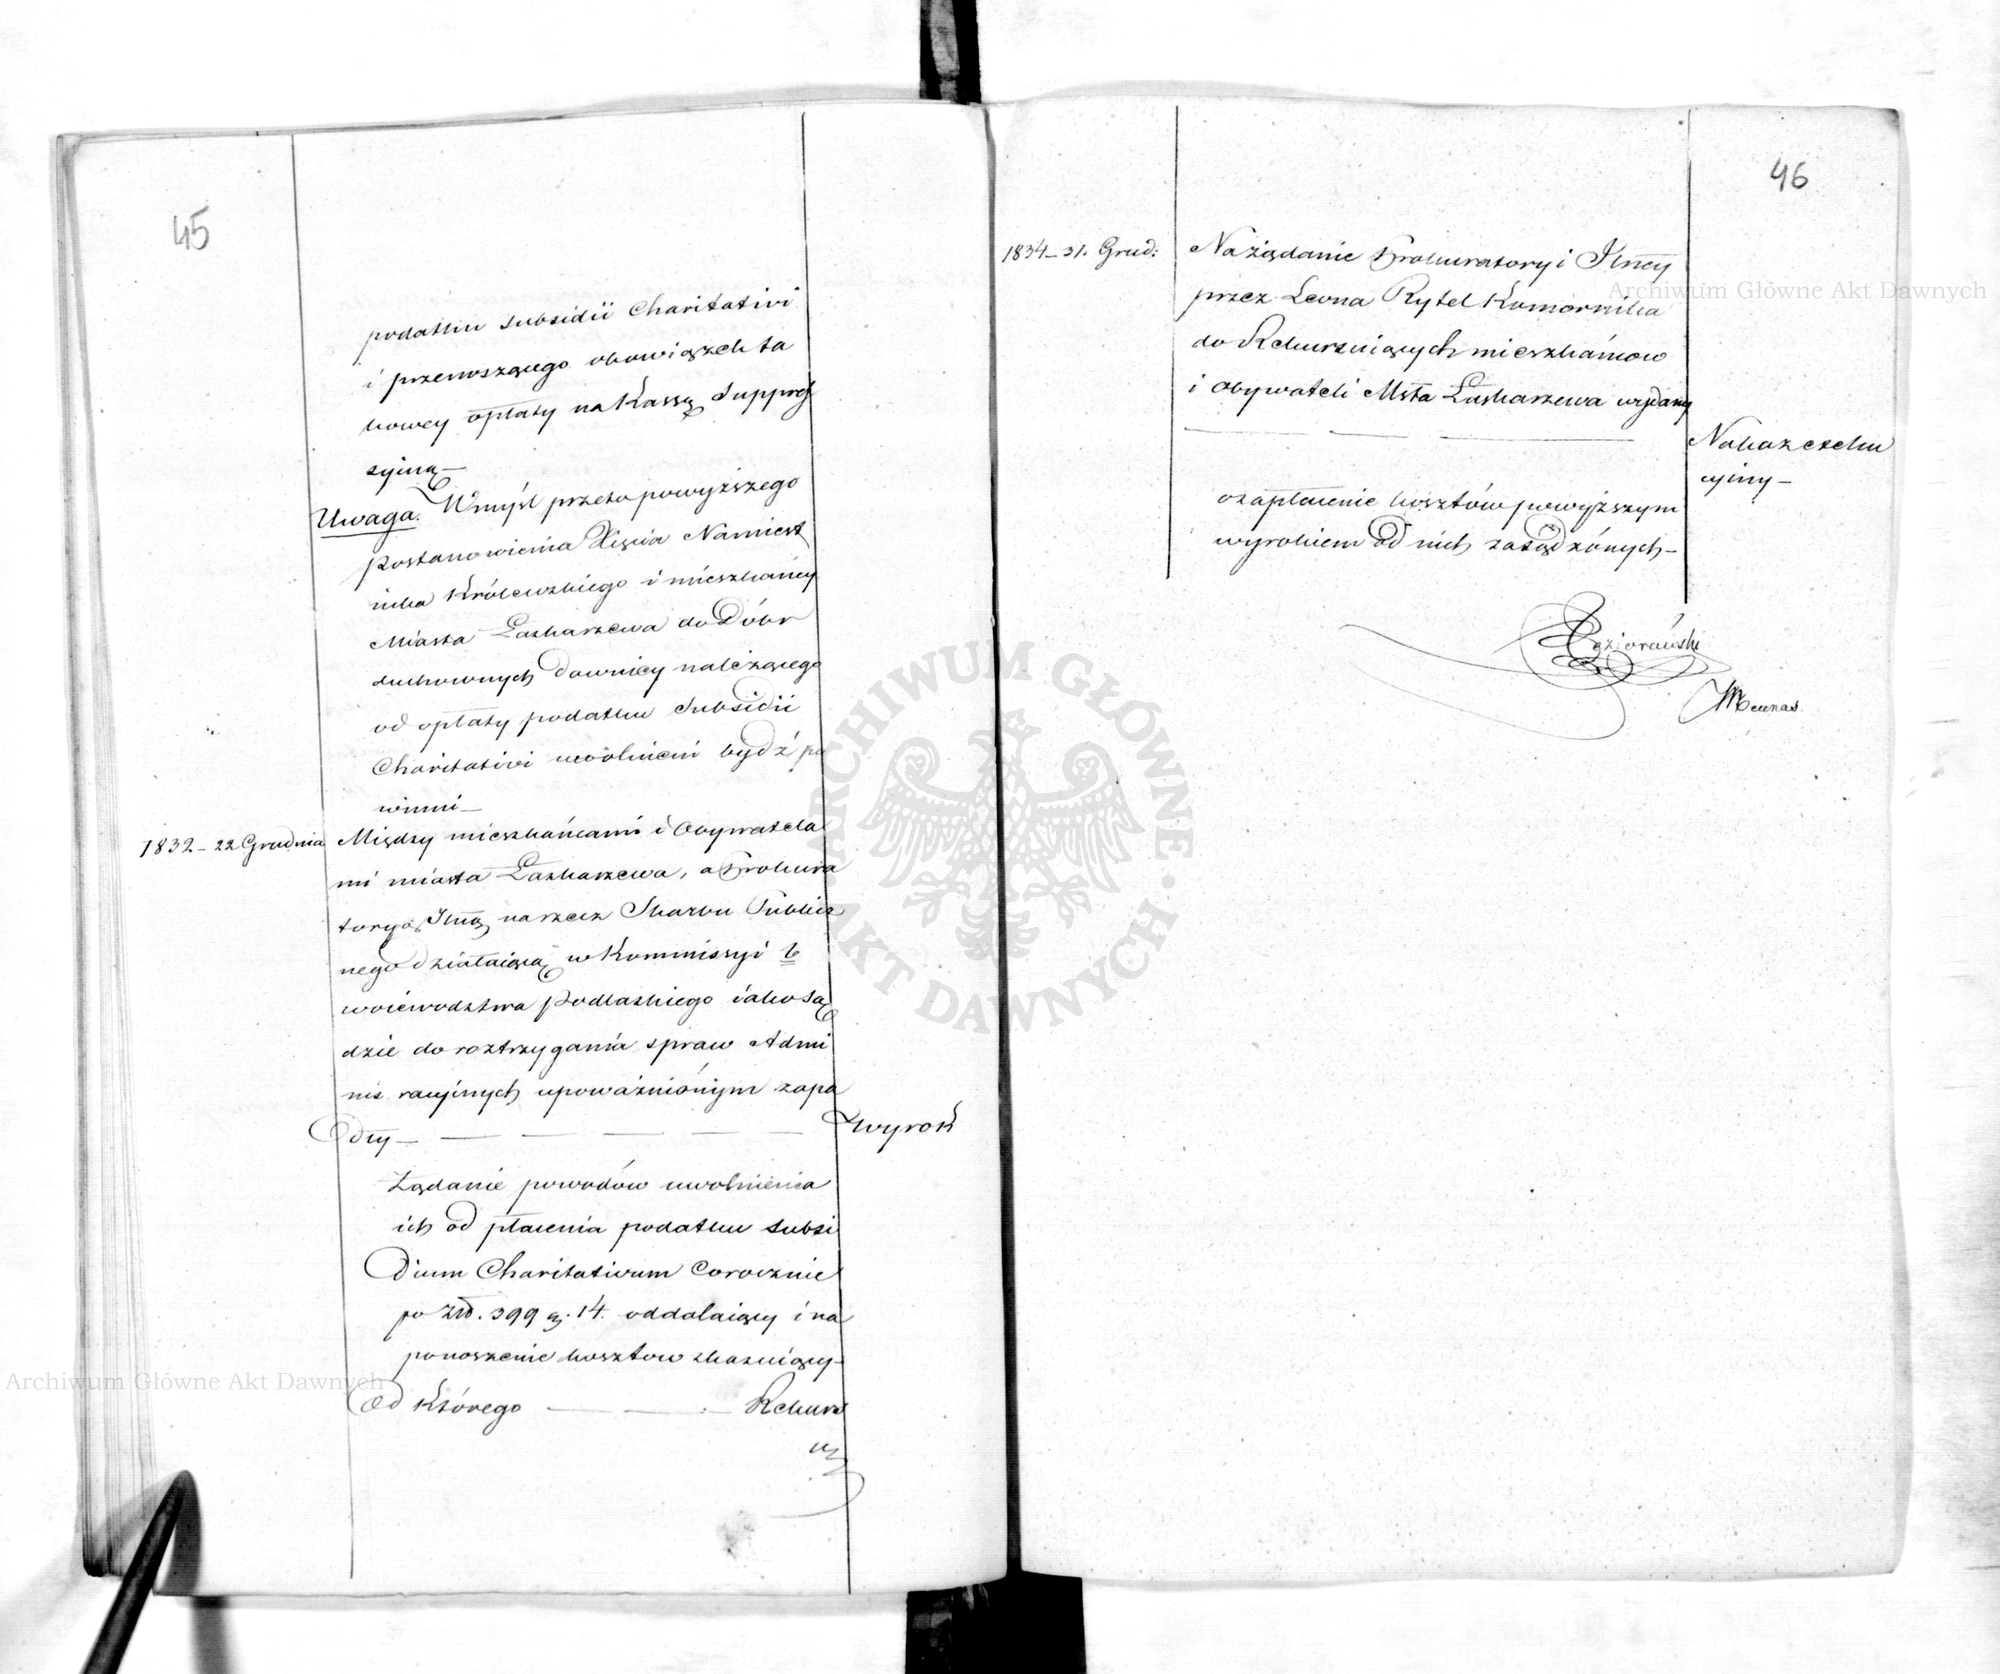 45
podatku subsidii Charitativi
i przenoszącego obowiązek ta
kowey opłaty na Kassę Suppres
syiną —
Uwaga. W myśl przeto powyższego
postanowienia Xięcia Namiest
nika Królewskiego i mieszkańcy
Miasta Łaskarzewa do Dóbr
duchownych dawniey należącego
od opłaty podatku Subsidii
Charitativi uwolnieni bydź po
winni —
1832 – 22 Grudnia
Między mieszkańcami i Obywatela
mi miasta Łaskarzewa, a Prokura
toryą Jlną na rzecz Skarbu Publicz
nego działaiącą w Kommissyi b
woiewodztwa Podlaskiego iako Są
dzie do roztrzygania spraw Admi
nis racyinych upoważnionym zapa
dły — — — — —
Wyrok
Żądanie powodów uwolnienia
ich od płacenia podatku subsi
dium Charitativum Corocznie
po Złł. 399 g. 14. oddalaiący i na
ponoszenie kosztow skazuiący —
Od którego — — — Rekurs
46
1834 – 31. Grud:
Na żądanie Prokuratoryi Jlney
przez Leona Rytel Komornika
do Rekursuiących mieszkańcow
i Obywateli Msta Łaskarzewa wydany
— — —
Nakaz exeku
cyiny —
o zapłacenie kosztów powyższym
wyrokiem od nich zasądzónych —
Mecenas
Archiwum Główne Akt Dawnych
Archiwum Główne Akt Dawnych
ARCHIWUM GŁÓWNE AKT DAWNYCH